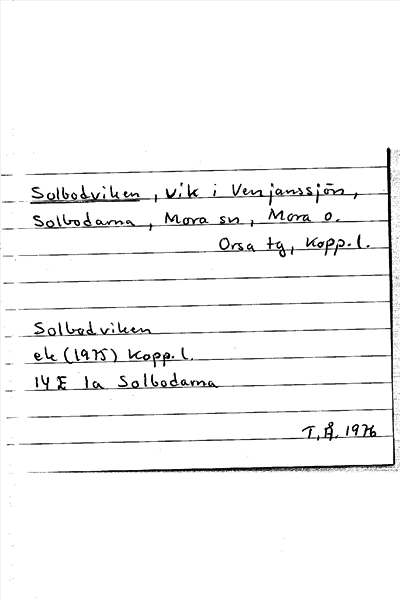 Solbodviken, vik i Venjanssjön,
Solbodarna, Mora sn, Mora o.
Orsa tg, Kopp. l.
Solbodviken
ek (1975) Kopp. l.
14 E 1a Solbodarna
T. Å. 1976